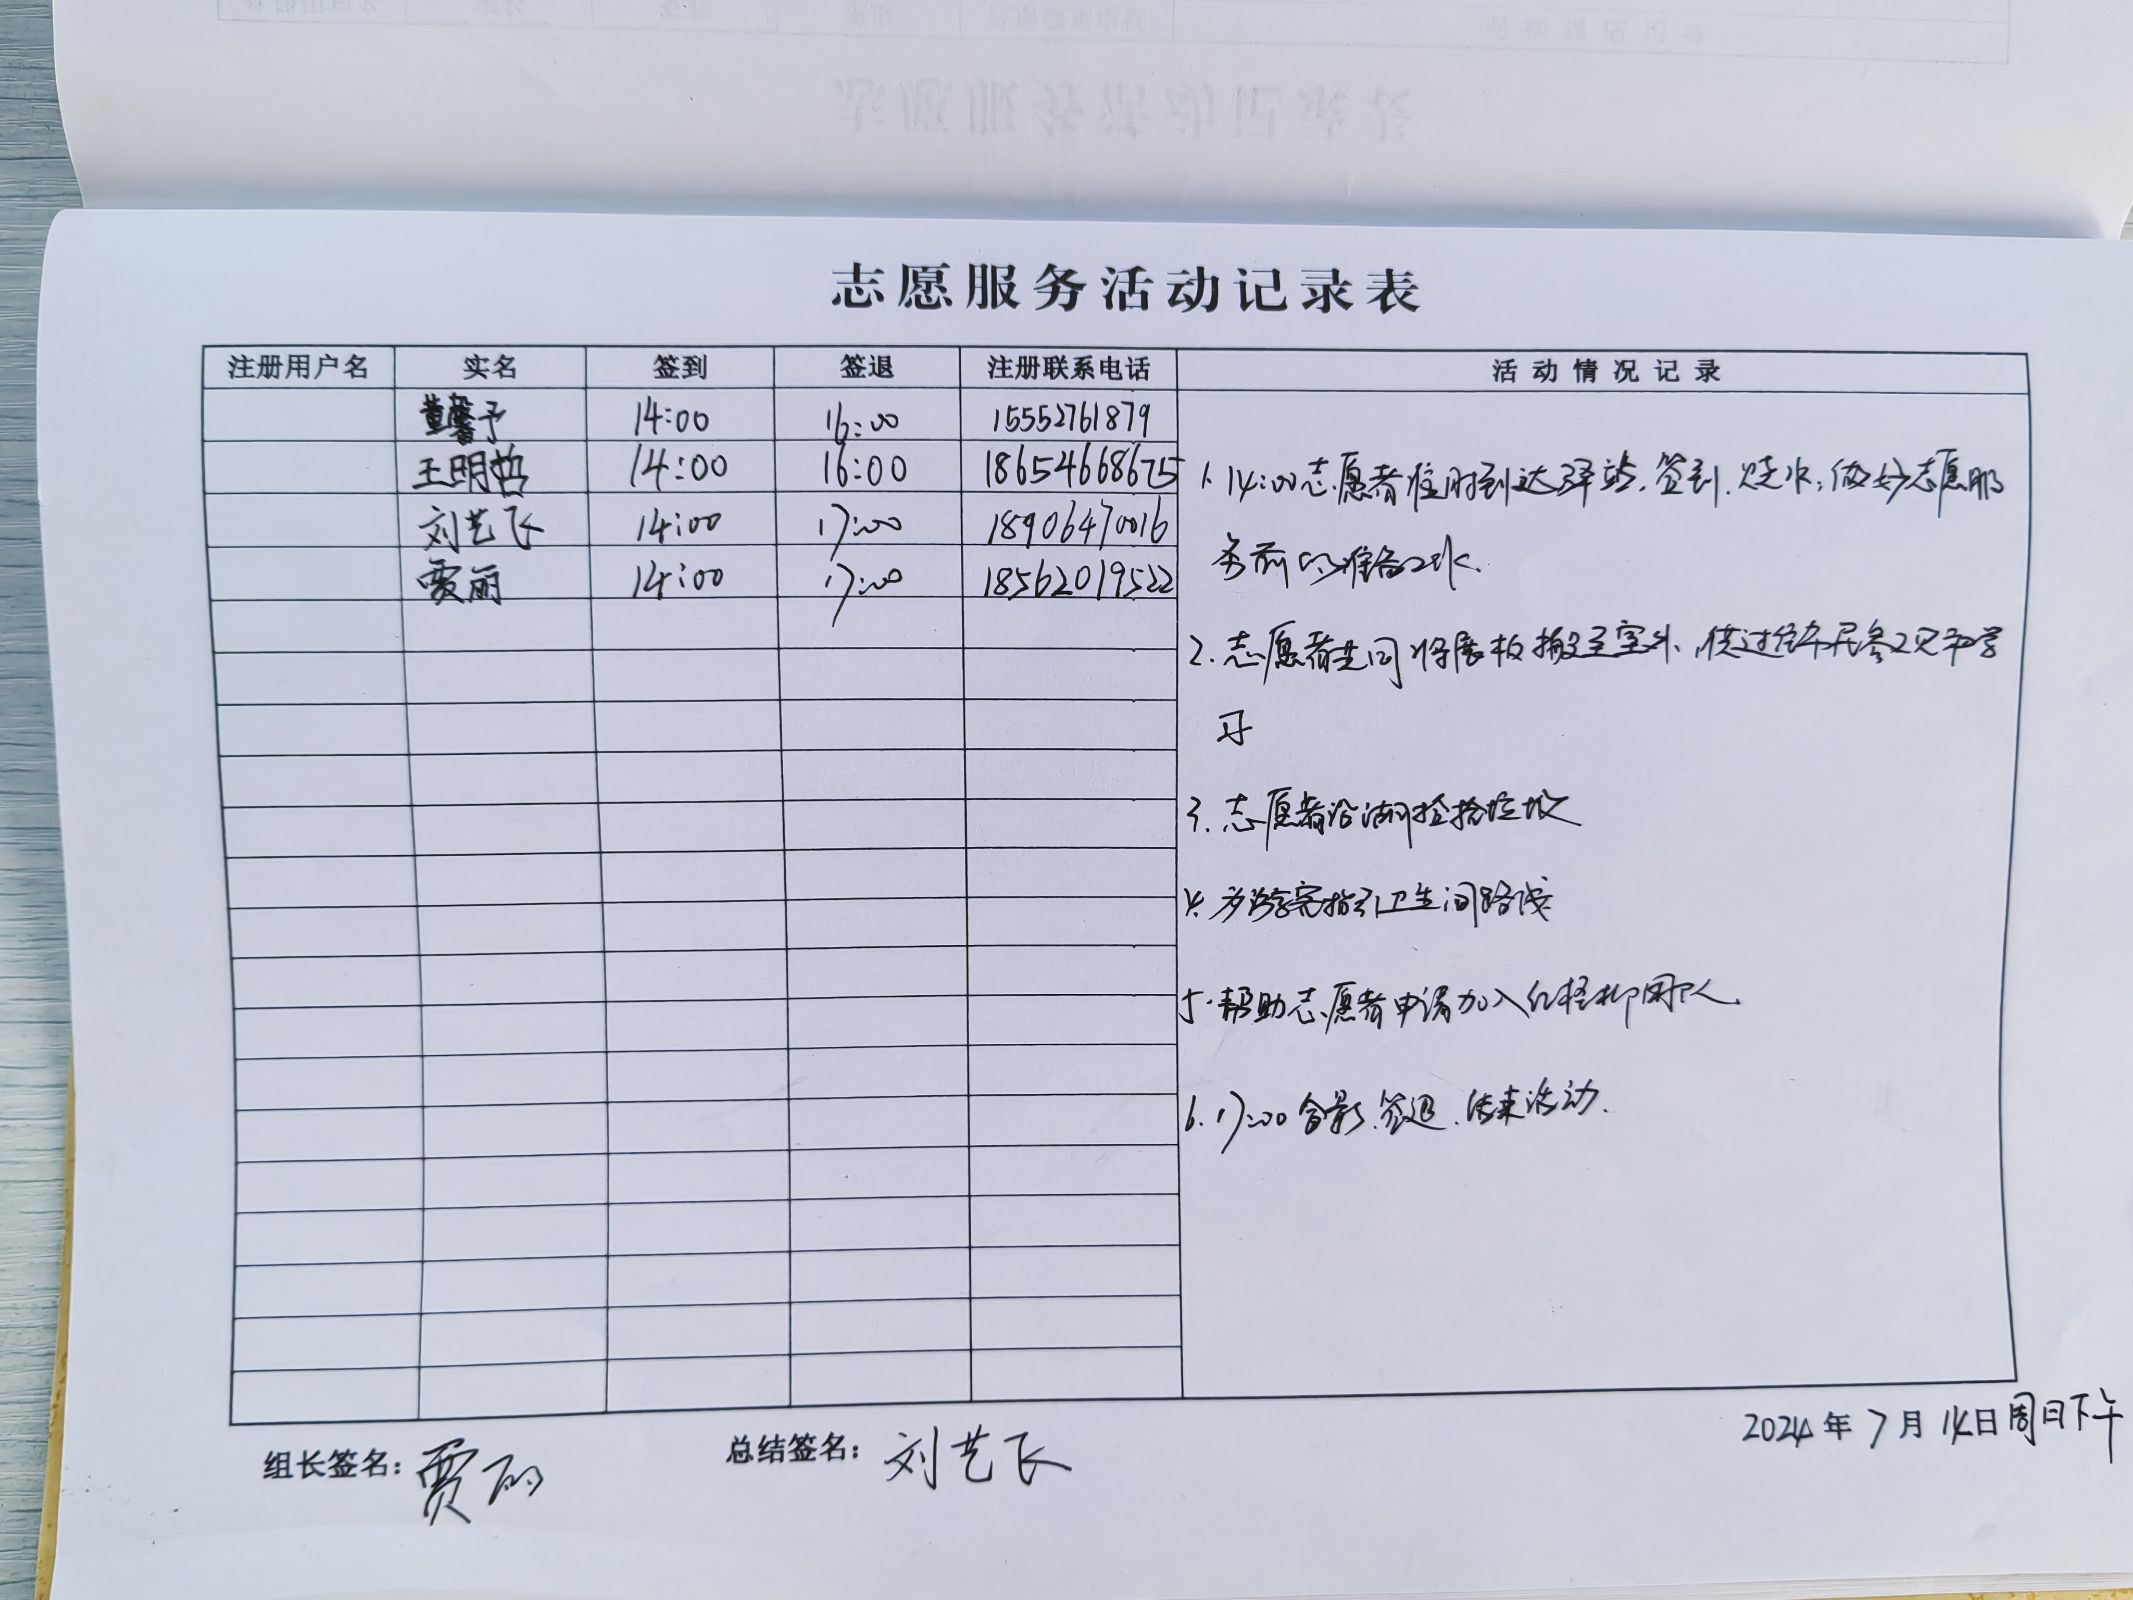 志愿服务活动记录表
注册用户名 实名 签到 签退 注册联系电话 活动情况记录
董馨予 14:00 16:00 15552761879
王明哲 14:00 16:00 18654668675
刘艺飞 14:00 17:00 18906470016
贾丽 14:00 17:00 18562019522
1. 14:00志愿者准时到达驿站,签到,烧水,做好志愿服
务前的准备工作.
2. 志愿者共同将展板搬至室外,供过往市民参观和学
习
3. 志愿者沿湖捡拾垃圾
4. 为游客指引卫生间路线
5. 帮助志愿者申请加入红柽柳团队.
6. 17:00合影,签退,结束活动.
组长签名:贾丽 总结签名:刘艺飞 2024年7月14日周日下午